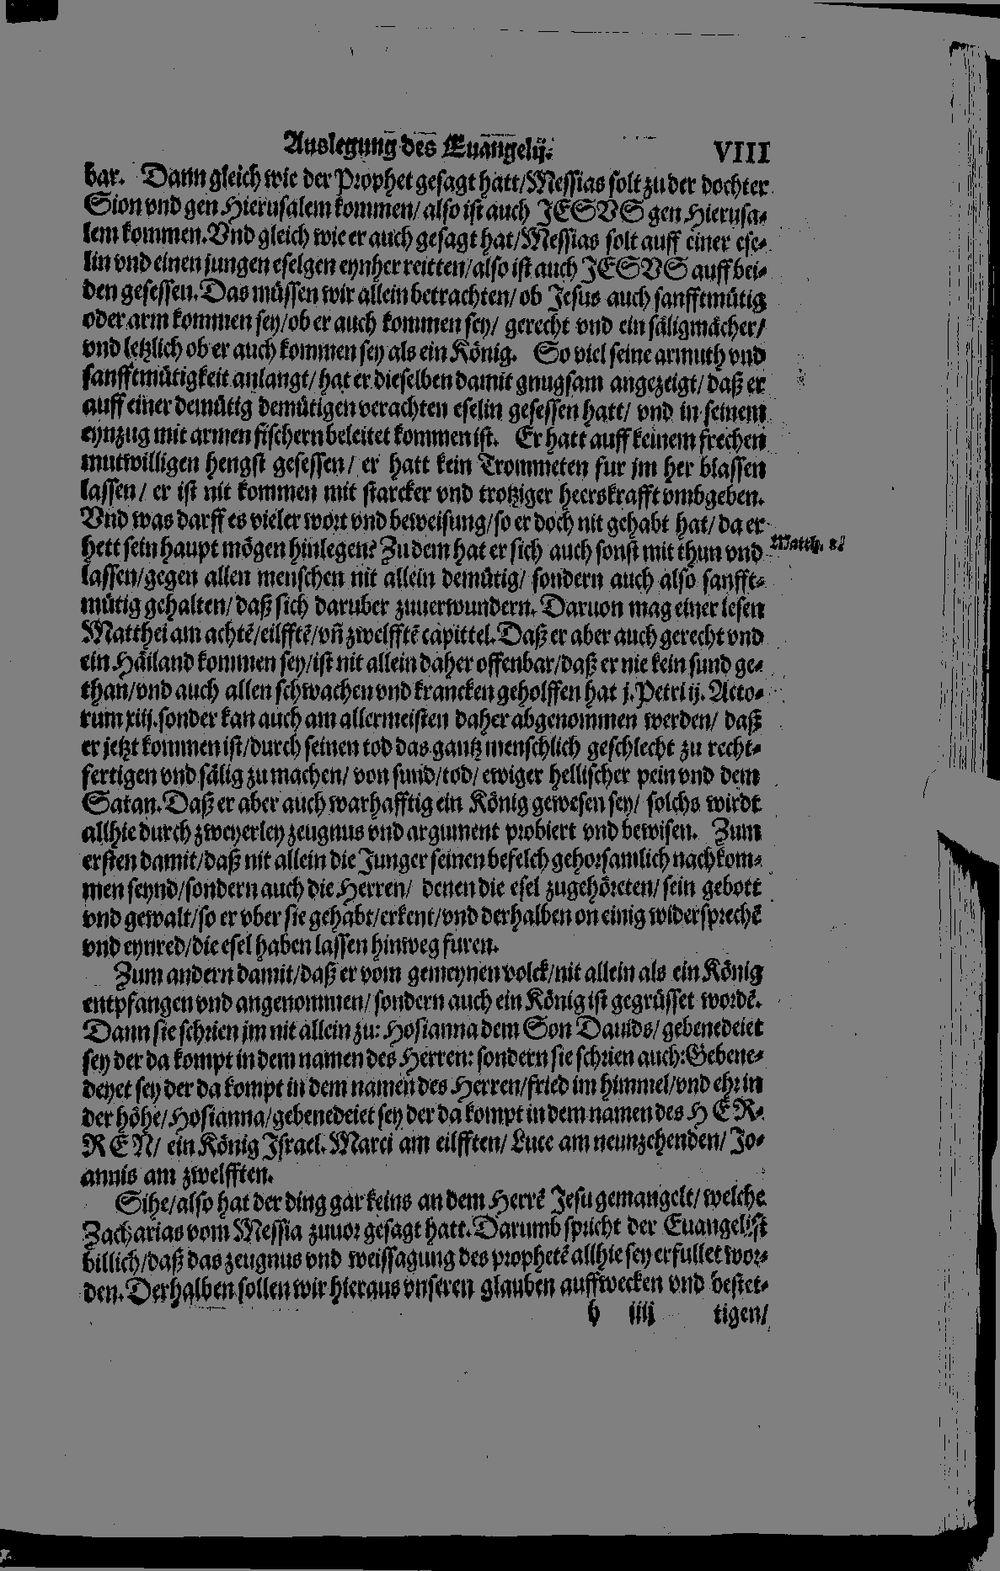 Auslegung des Euangelij. VIII
bar. Dann gleich wie der Prophet gesagt hatt/Messias solt zu der dochter
Sion vnd gen Hierusalem kommen/ also ist auch JESVS gen Hierusa-
lem kommen. Vnd gleich wie er auch gesagt hat/Messias solt auff einer ese-
lin vnd einen jungen eselgen eynher reitten/also ist auch JESVS auff bei-
den gesessen. Das müssen wir allein betrachten/ ob Jesus auch sanfftmütig
oder arm kommen sey/ob er auch kommen sey/ gerecht vnd ein säligmächer/
vnd letzlich ob er auch kommen sey als ein König. So viel seine armuth vnd
sanfftmütigkeit anlangt/hat er dieselben damit gnugsam angezeigt/daß er
auff einer demütig demütigen verachten eselin gesessen hatt/ vnd in seinem
eynzug mit armen fischern beleitet kommen ist. Er hatt auff keinem frechen
mutwilligen hengst gesessen/ er hatt kein Trommeten fur jm her blassen
lassen/ er ist nit kommen mit starcker vnd trotziger heerskrafft vmbgeben.
Vnd was darff es vieler wort vnd beweisung/so er doch nit gehabt hat/da er
hett sein haupt mögen hinlegen? Zu dem hat er sich auch sonst mit thun vnd
Matth. 8.
lassen/gegen allen menschen nit allein demütig/ sondern auch also sanfft-
mütig gehalten/daß sich daruber zuuerwundern. Daruon mag einer lesen
Matthei am achtẽ/eilfftẽ/vñ zwelfftẽ capittel. Daß er aber auch gerecht vnd
ein Häiland kommen sey/ist nit allein daher offenbar/daß er nie kein sund ge-
than/vnd auch allen schwachen vnd krancken geholffen hat j. Petri ij. Acto-
rum xiij. sonder kan auch am allermeisten daher abgenommen werden/ daß
er jetzt kommen ist/durch seinen tod das gantz menschlich geschlecht zu recht-
fertigen vnd sälig zu machen/ von sund/tod/ ewiger hellischer pein vnd dem
Satan. Daß er aber auch warhafftig ein König gewesen sey/ solchs wirdt
allhie durch zweyerley zeugnus vnd argument probiert vnd bewisen. Zum
ersten damit/daß nit allein die Junger seinen befelch gehorsamlich nachkom-
men seynd/sondern auch die Herren/ denen die esel zugehöreten/ sein gebott
vnd gewalt/so er vber sie gehabt/erkent/vnd derhalben on einig widersprechẽ
vnd eynred/die esel haben lassen hinweg furen.
Zum andern damit/daß er vom gemeynen volck/nit allein als ein König
entpfangen vnd angenommen/sondern auch ein König ist gegrüsset wordẽ.
Dann sie schrien jm nit allein zu: Hosianna dem Son Dauids/ gebenedeiet
sey der da kompt in dem namen des Herren: sondern sie schrien auch: Gebene-
deyet sey der da kompt in dem namen des Herren/fried im himmel/vnd ehr in
der höhe/Hosianna/gebenedeiet sey der da kompt in dem namen des HER-
REN/ ein König Israel. Marci am eilfften/ Luce am neunzehenden/ Jo-
annis am zwelfften.
Sihe/also hat der ding gar keins an dem Herrẽ Jesu gemangelt/welche
Zacharias vom Messia zuuor gesagt hatt. Darumb spricht der Euangelist
billich/daß das zeugnus vnd weissagung des prophetẽ allhie sey erfullet wor-
den. Derhalben sollen wir hieraus vnseren glauben auffwecken vnd bestet-
b iiij tigen/